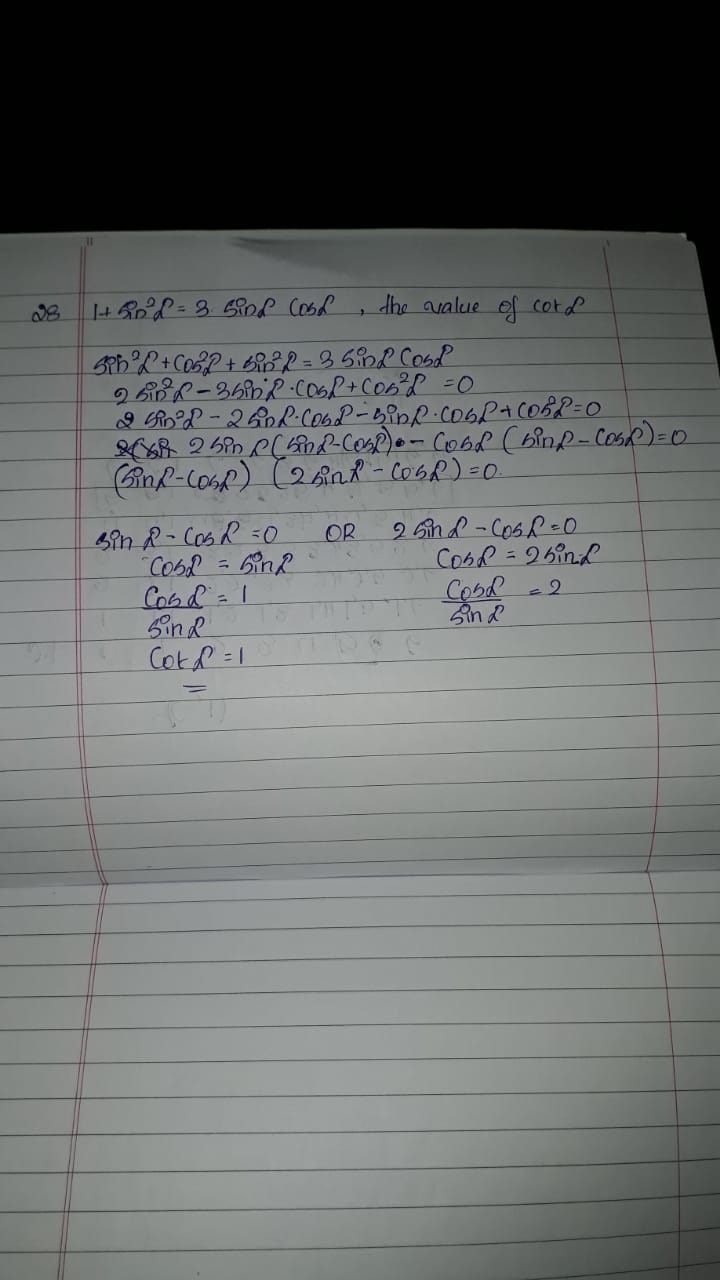 28 1+ sin²α = 3 sinα cosα , the value of cotα
sin²α + cos²α + sin²α = 3 sinα cosα
2 sin²α - 3 sinα · cosα + cos²α = 0
2 sin²α - 2 sinα · cosα - sinα · cosα + cos²α = 0
2 sin α (sinα - cosα) - cosα (sinα - cosα) = 0
(sinα - cosα) (2 sinα - cosα) = 0.
sin α - cosα = 0 OR 2 sinα - cosα = 0
cosα = sinα cosα = 2 sinα
cosα = 1 cosα = 2
sinα sinα
cotα = 1